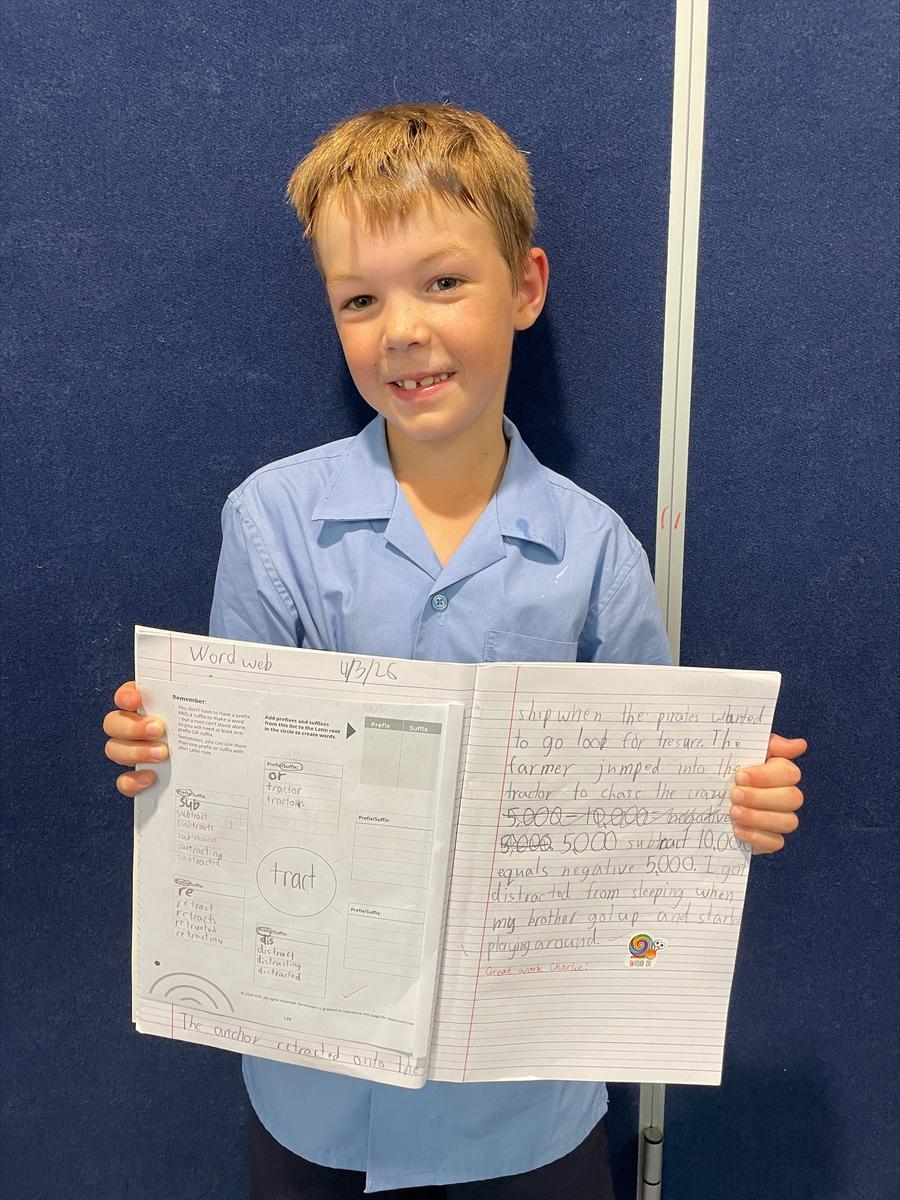 Word web 4/3/26
Remember:
You don't have to have a prefix
AND a suffix to make a word
- but a root can't stand alone,
so you will need at least one
prefix OR suffix.
Sometimes, you can use more
than one prefix or suffix with
your Latin root.
Add prefixes and suffixes
from this list to the Latin root
in the circle to create words.
Prefix Suffix
Prefix/Suffix:
or
tractor
tractors
Prefix/Suffix
sub
subtract
subtracts
subtracting
subtracted
Prefix/Suffix:
tract
Prefix/Suffix
re
retract
retracts
retracted
retracting
Prefix/Suffix:
Prefix/Suffix
dis
distract
distracting
distracted
128
The anchor retracted onto the
ship when the pirates wanted
to go look for tresure. The
farmer jumped into the
tractor to chase the crazy
5,000 - 10,000 = negative
5,000. 5,000 subtract 10,000
equals negative 5,000. I got
distracted from sleeping when
my brother got up and start
playing around.
Great work Charlie!